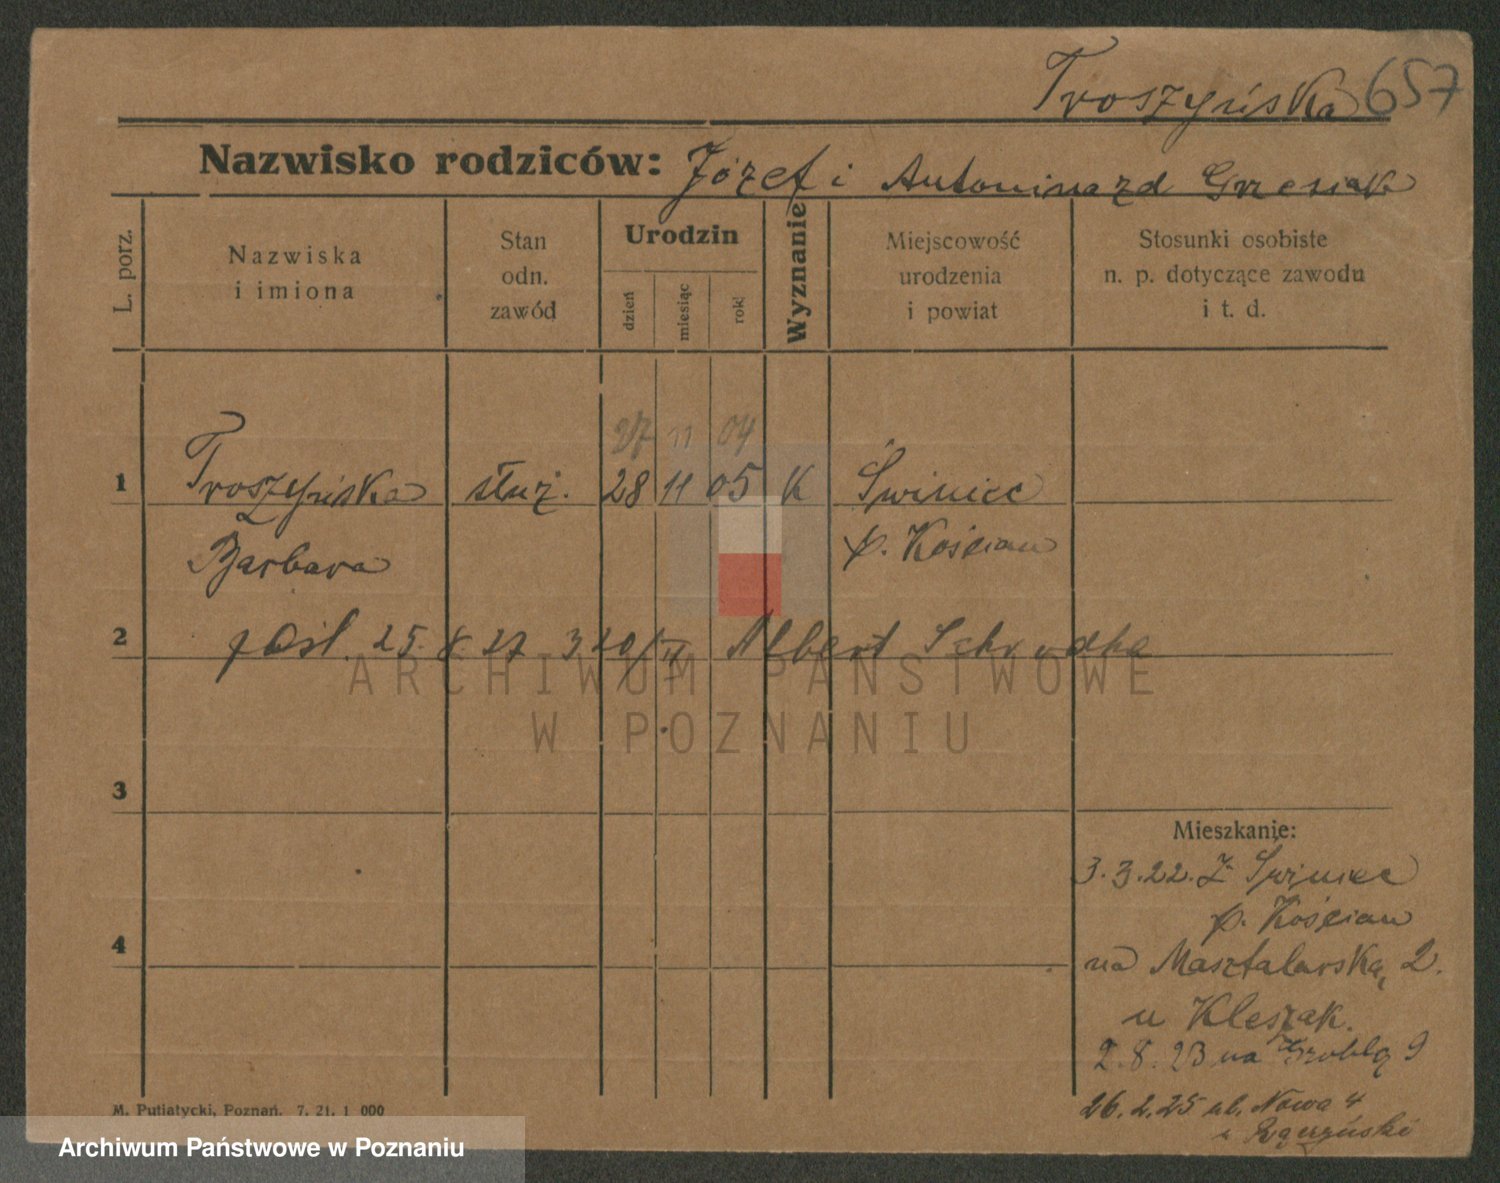 Troszyńska 657
Nazwisko rodziców: Józef i Antonina zd Grzesiak
L. porz.
Nazwiska
i imiona
Stan
odn.
zawód
Urodzin
dzień
miesiąc
rok
Wyznanie
Miejscowość
urodzenia
i powiat
Stosunki osobiste
n. p. dotyczące zawodu
i t. d.
27 11 04
1 Troszyńska służ. 28 11 05 K Świniec
Barbara p. Kościan
2 25. 8 27 Albert
ARCHIWUM PAŃSTWOWE
W POZNANIU
3
Mieszkanie:
3.3.22. Z Świniec
p. Kościan
4
na Masztalarską 2.
u Kleszak.
2.8.23 na Groblą 9
26.2.25 ul. Nowa 4
M. Putiatycki, Poznań. 7. 21. 1 000
Archiwum Państwowe w Poznaniu